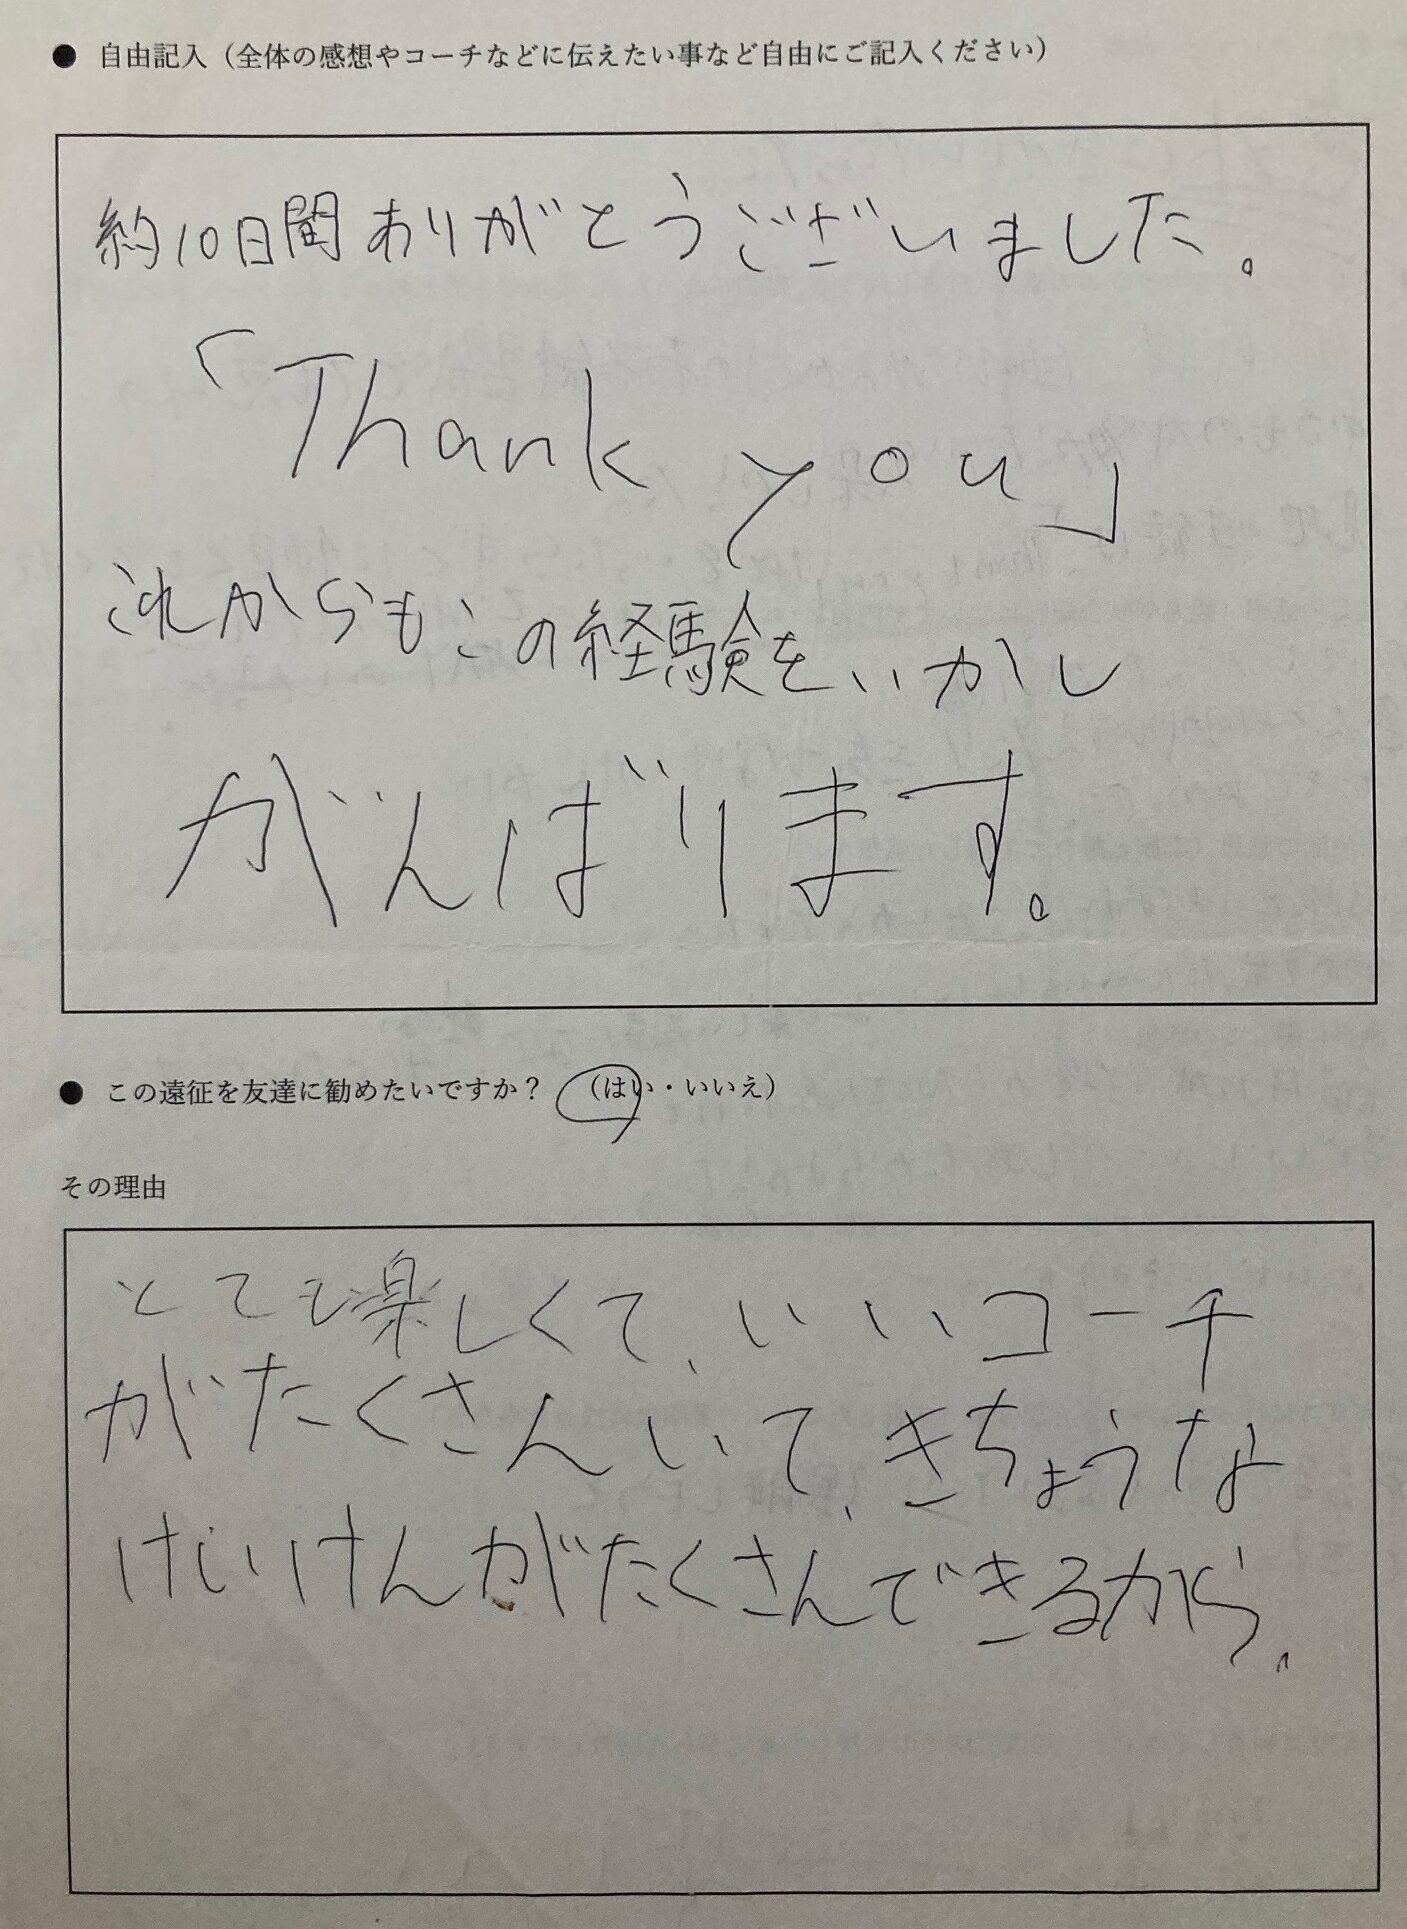 ● 自由記入（全体の感想やコーチなどに伝えたい事など自由にご記入ください）
約10日間ありがとうございました。
「Thank you」
これからもこの経験をいかし
がんばります。
● この遠征を友達に勧めたいですか？ （はい・いいえ）
その理由
とても楽しくて、いいコーチ
がたくさんいて、きちょうな
けいけんがたくさんできるから。